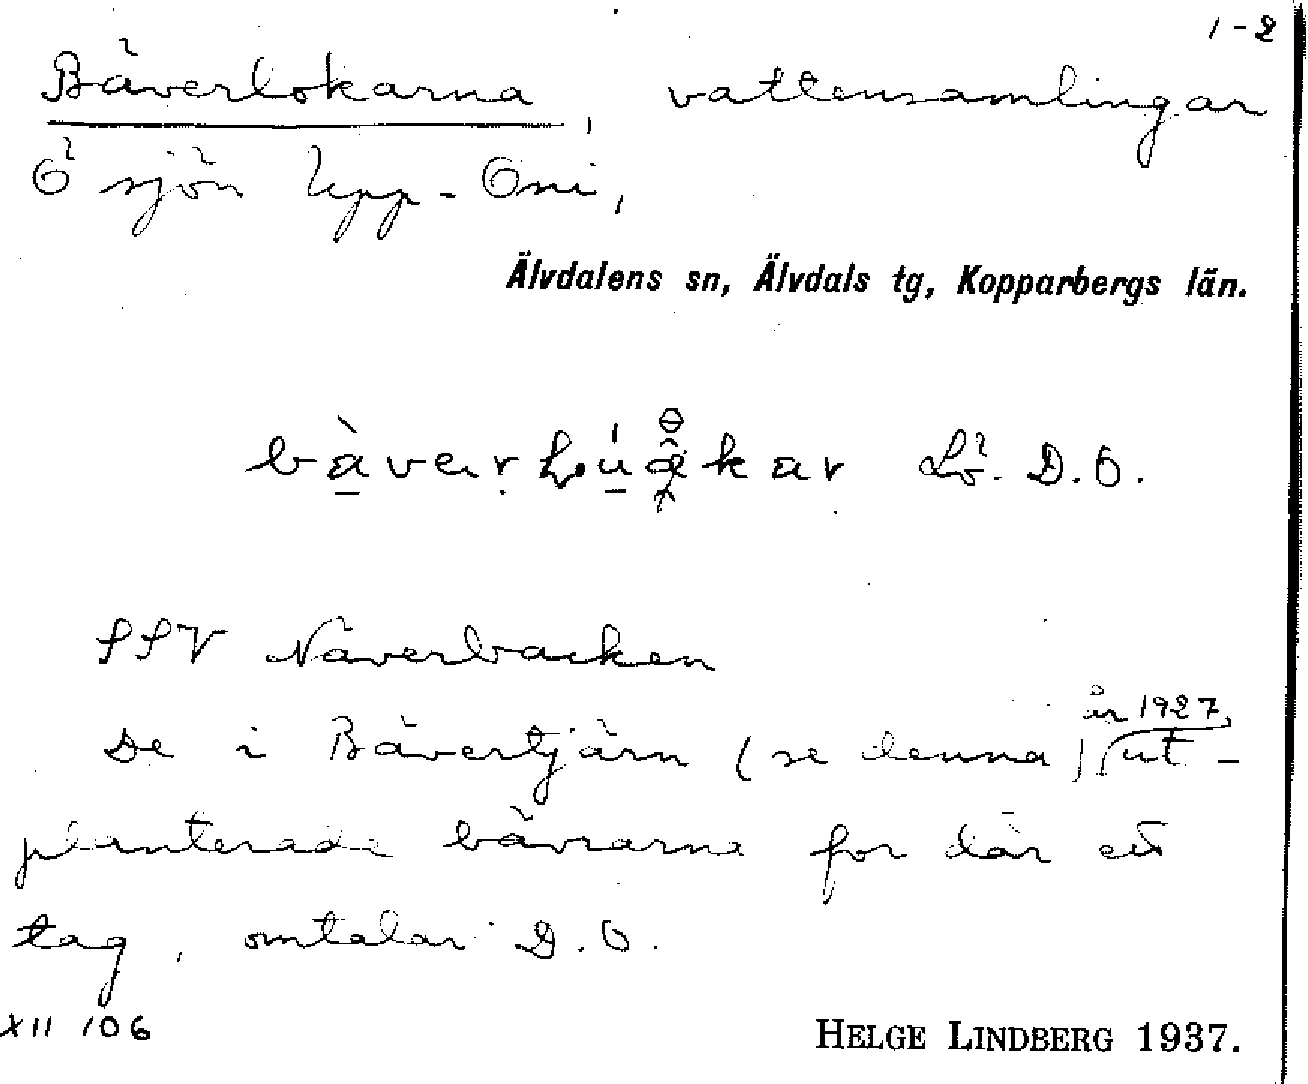 1-2
Bäverlokarna, vattensamlingar
Ö sjön Upp-Oni,
Älvdalens sn, Älvdals tg, Kopparbergs län.
Lö. D.O.
SSV Näverbacken
år 1927,
De i Bävertjärn (se denna) ut-
planterade bävrarna for där ett
tag, omtalar D.O.
XII 106
HELGE LINDBERG 1937.